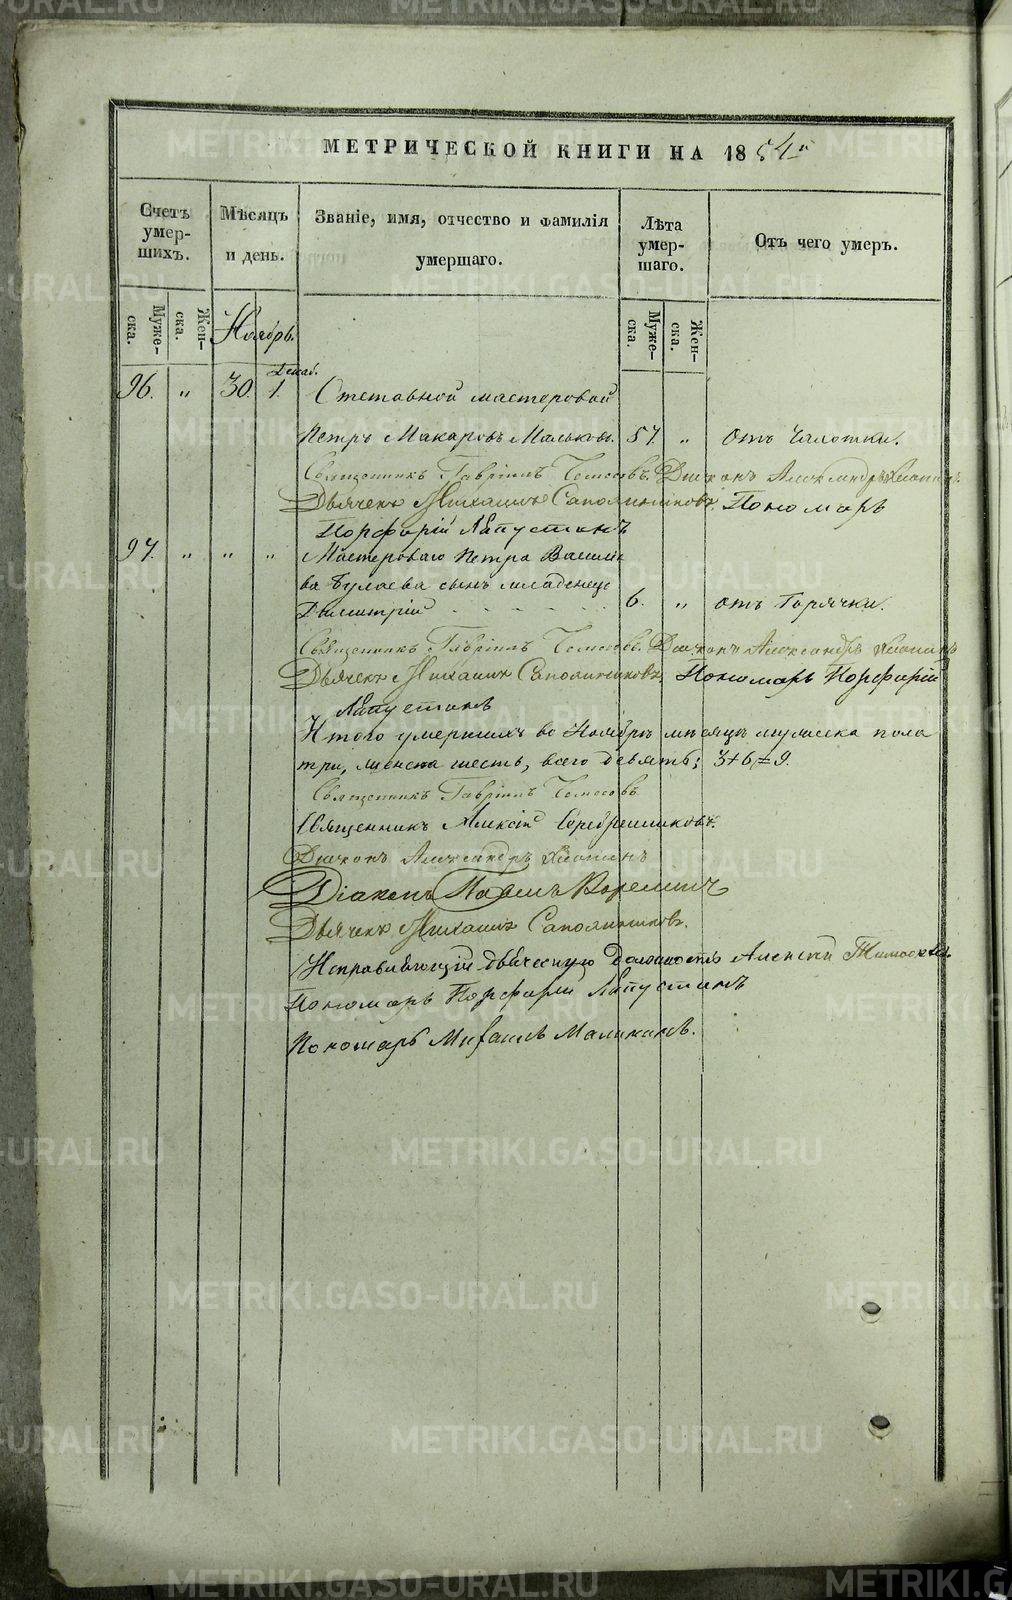 МЕТРИЧЕСКОЙ КНИГИ НА 1854й
Счетъ умер-шихъ.
Мѣсяцъ и день.
Званіе, имя, отчество и фамилія умершаго.
Лѣта умер-шаго.
Отъ чего умеръ.
Муже-ска.
Жен-ска.
Ноябрь.
Муже-ска.
Жен-ска.
Декаб.
96. " 30. 1. Отставной мастеровой
Петръ Макаровъ Мальковъ. 57. " отъ Чахотки.
Священникъ Гавріилъ Діаконъ Александръ Хлопинъ.
Дьячекъ Михаилъ Сапожниковъ. Пономарь
Порфирій Лапустинъ
97. " " " Мастероваго Петра Василье
ва Булаева сынъ младенецъ
Димитрій 6. " отъ Горячки.
Священникъ Гавріилъ Діаконъ Александръ Хлопинъ
Дьячекъ Михаилъ Сапожниковъ, Пономарь Порфирій
Лапустинъ
Итого умершихъ во Ноябрѣ мѣсяцѣ мужеска пола
три, женска шесть, всего девять; 3+6=9.
Священникъ Гавріилъ
Священникъ Алексій Серебренниковъ.
Діаконъ Александръ Хлопинъ
Діаконъ Павелъ
Дьячекъ Михаилъ Сапожниковъ.
Исправляющій дьяческую должность Алексѣй
Пономарь Порфирій Лапустинъ
Пономарь Михаилъ Малининъ.
METRIKI.GASO-URAL.RU